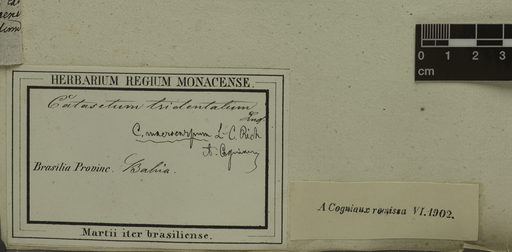 HERBARIUM REGIUM MONACENSE.
Catasetum tridentatum
Hook
C. macrocarpum L. C. Rich
A. Cogniaux
Brasilia Provinc. Bahia.
Martii iter brasiliense.
A Cogniaux remissa VI.1902.
0 1 2 3
cm